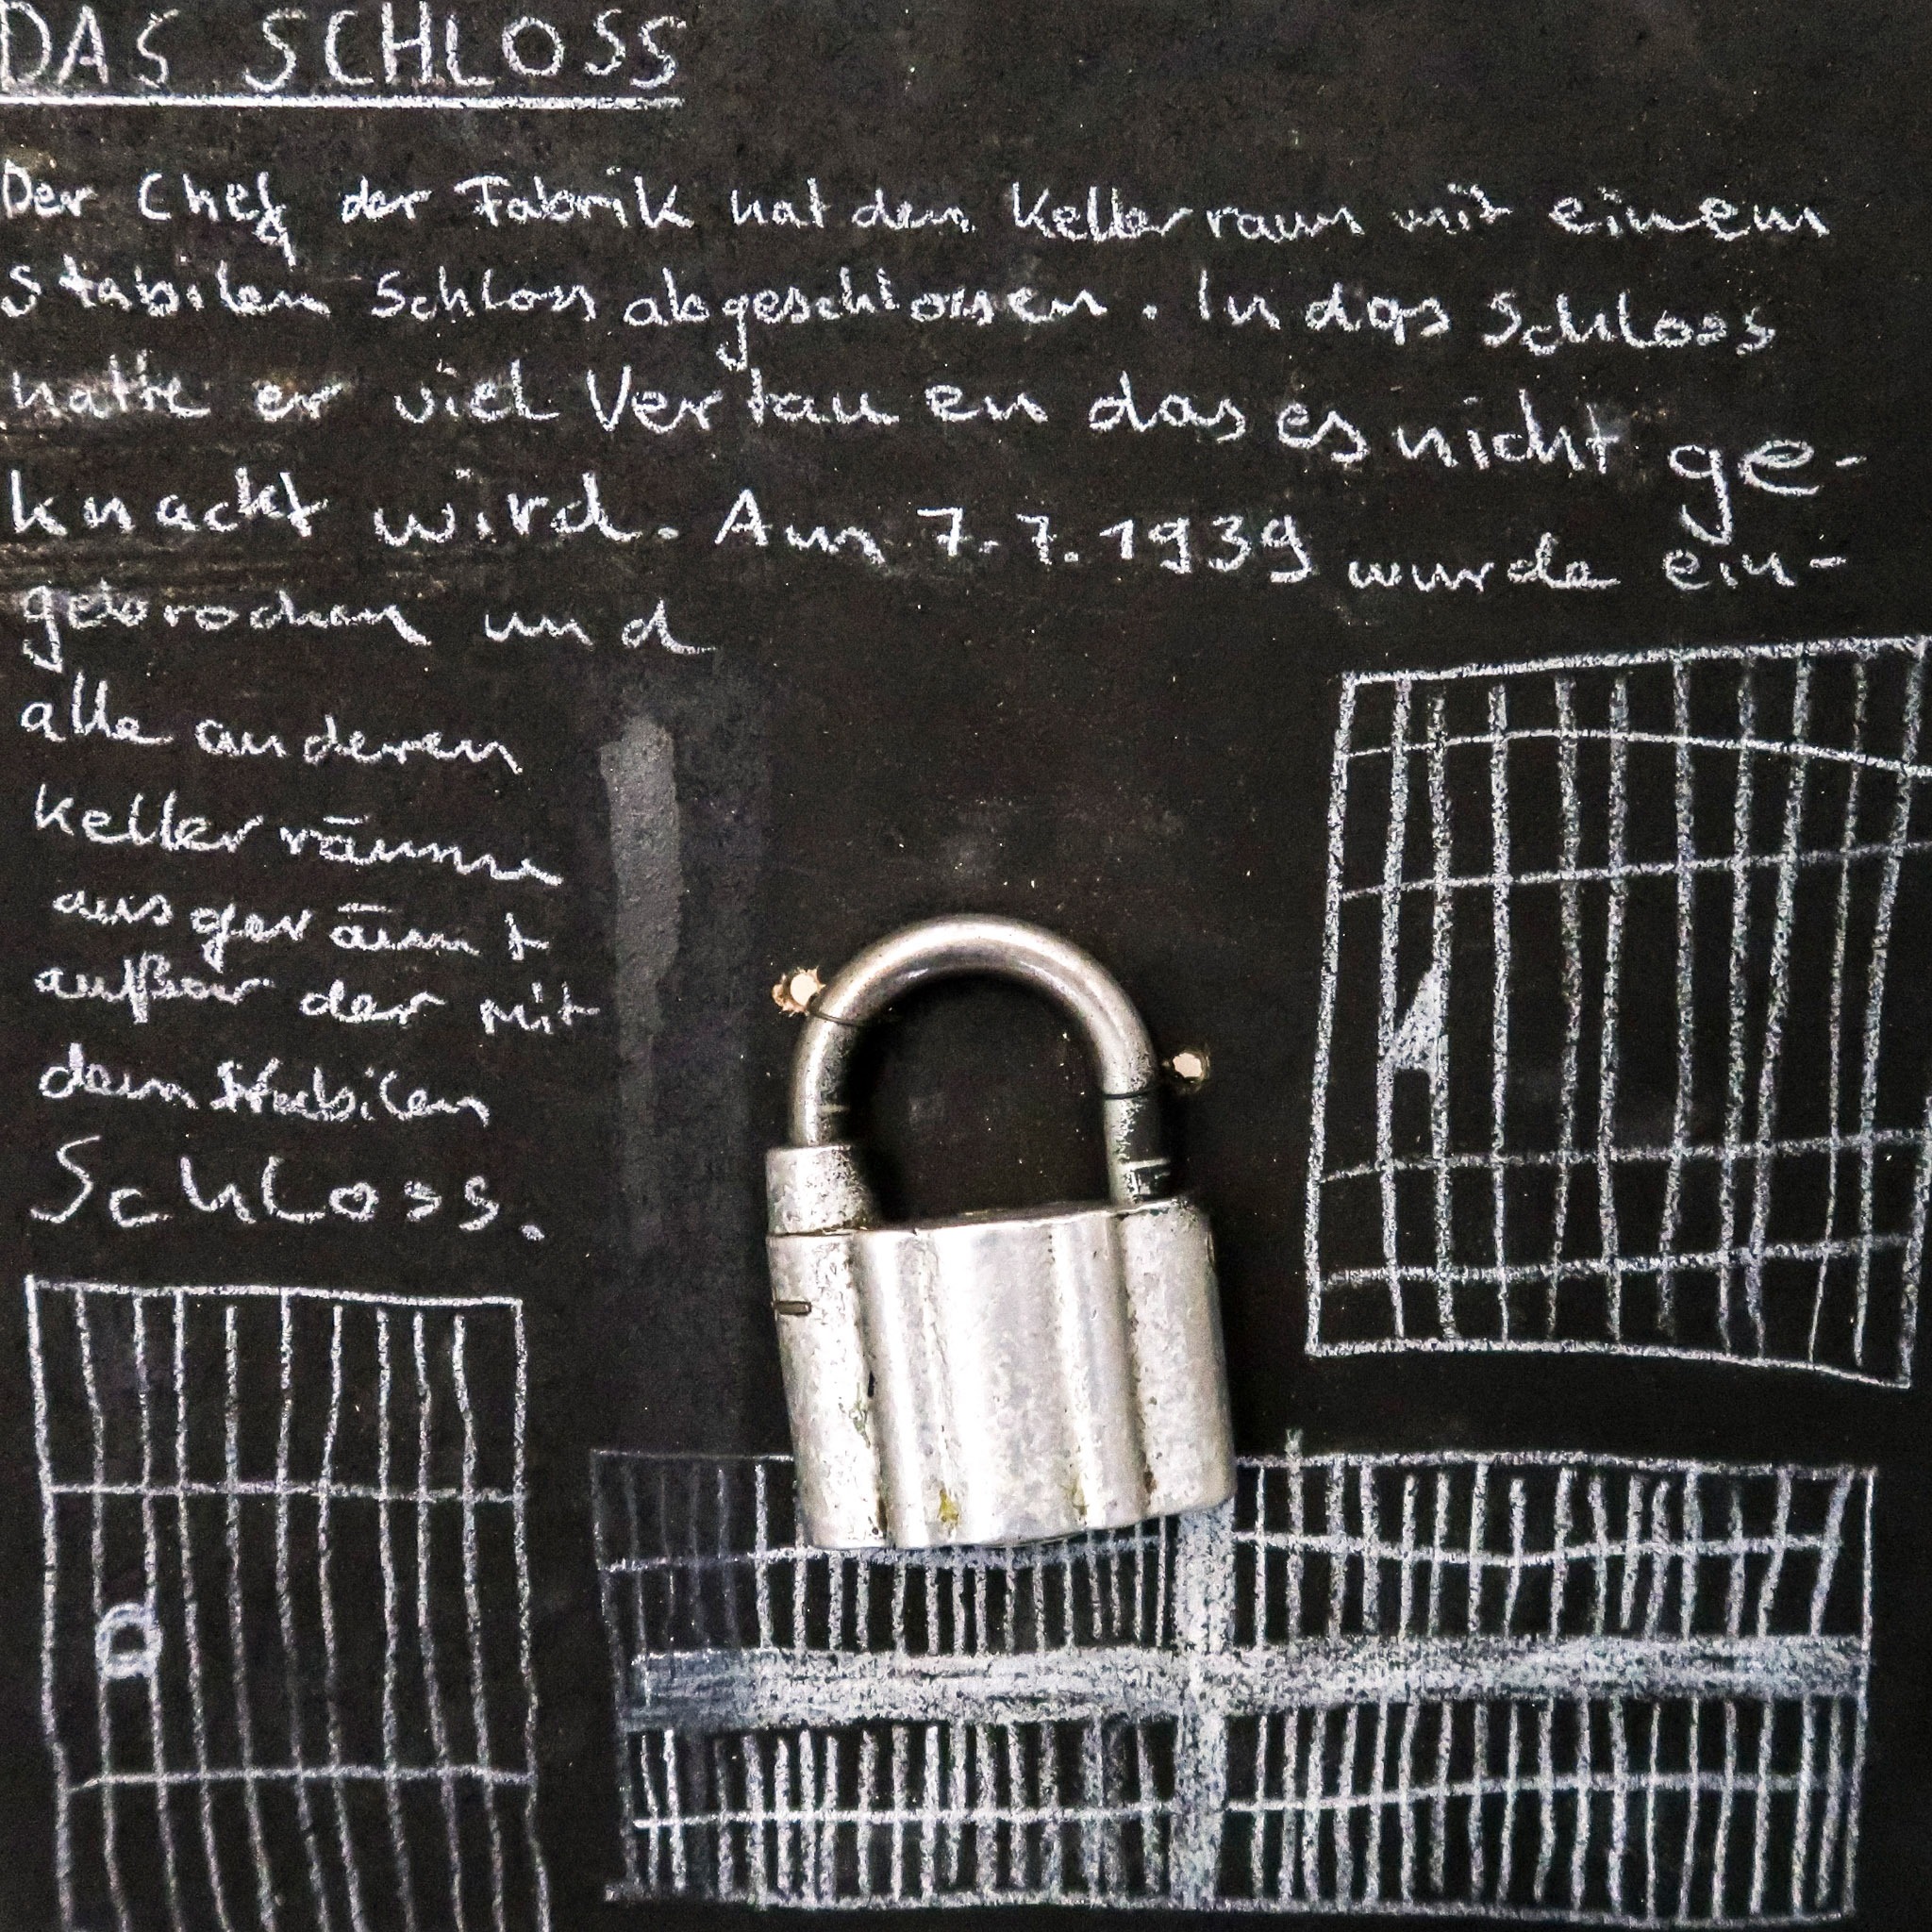 DAS SCHLOSS
Der Chef der Fabrik hat den Kellerraum mit einem
stabilen Schloss abgeschlossen. In das Schloss
hatte er viel Vertauen das es nicht ge-
knackt wird. Am 7.7.1939 wurde ein-
gebrochen und
alle anderen
Kellerräume
ausgeräumt
außer der mit
dem stabilen
Schloss.